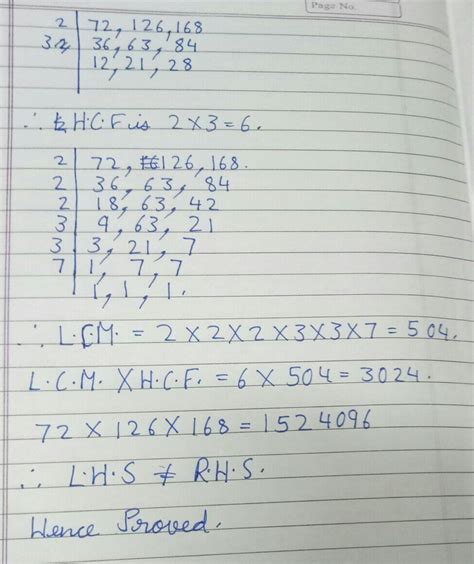 Page No.
2 | 72, 126, 168
3 | 36, 63, 84
12, 21, 28
∴ H.C.F is 2×3=6.
2 | 72, 126, 168.
2 | 36, 63, 84
2 | 18, 63, 42
3 | 9, 63, 21
3 | 3, 21, 7
7 | 1, 7, 7
1, 1, 1.
∴ L.C.M. = 2×2×2×3×3×7=504.
L.C.M. × H.C.F. = 6×504=3024.
72×126×168=1524096
∴ L.H.S ≠ R.H.S.
Hence Proved.